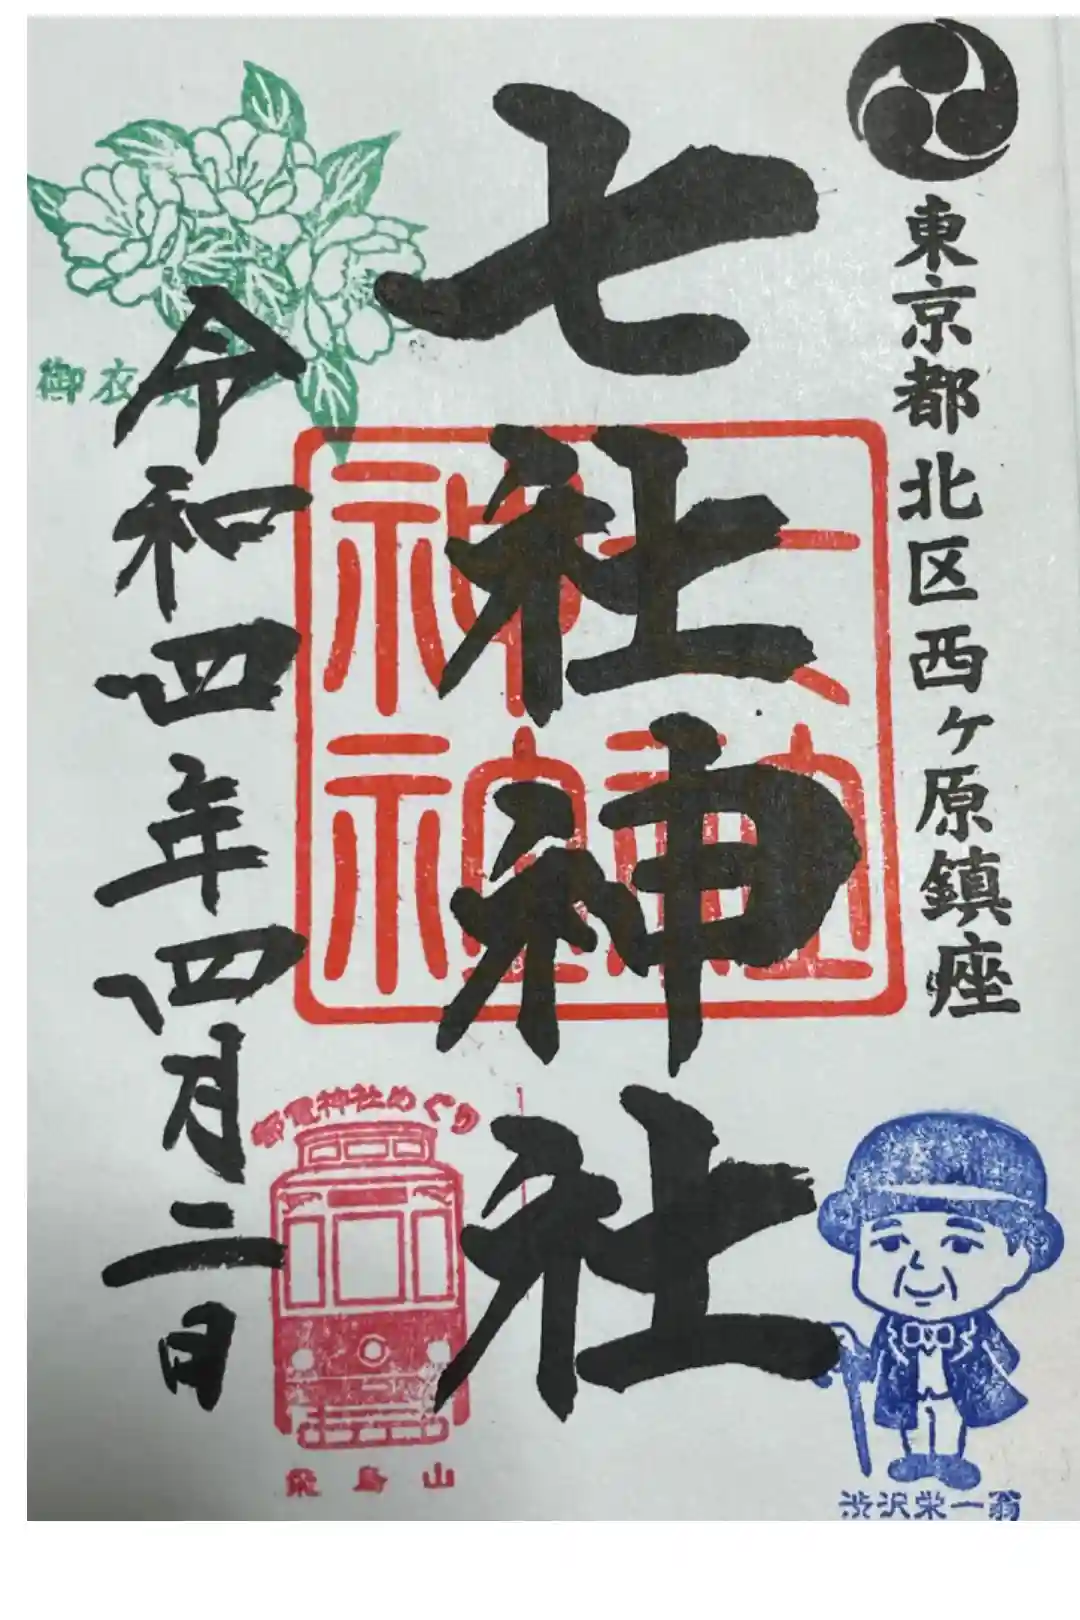 東京都北区西ヶ原鎮座
七社神社
七社
神社
令和四年四月二日
御衣
神社めぐり
飛鳥山
渋沢栄一翁